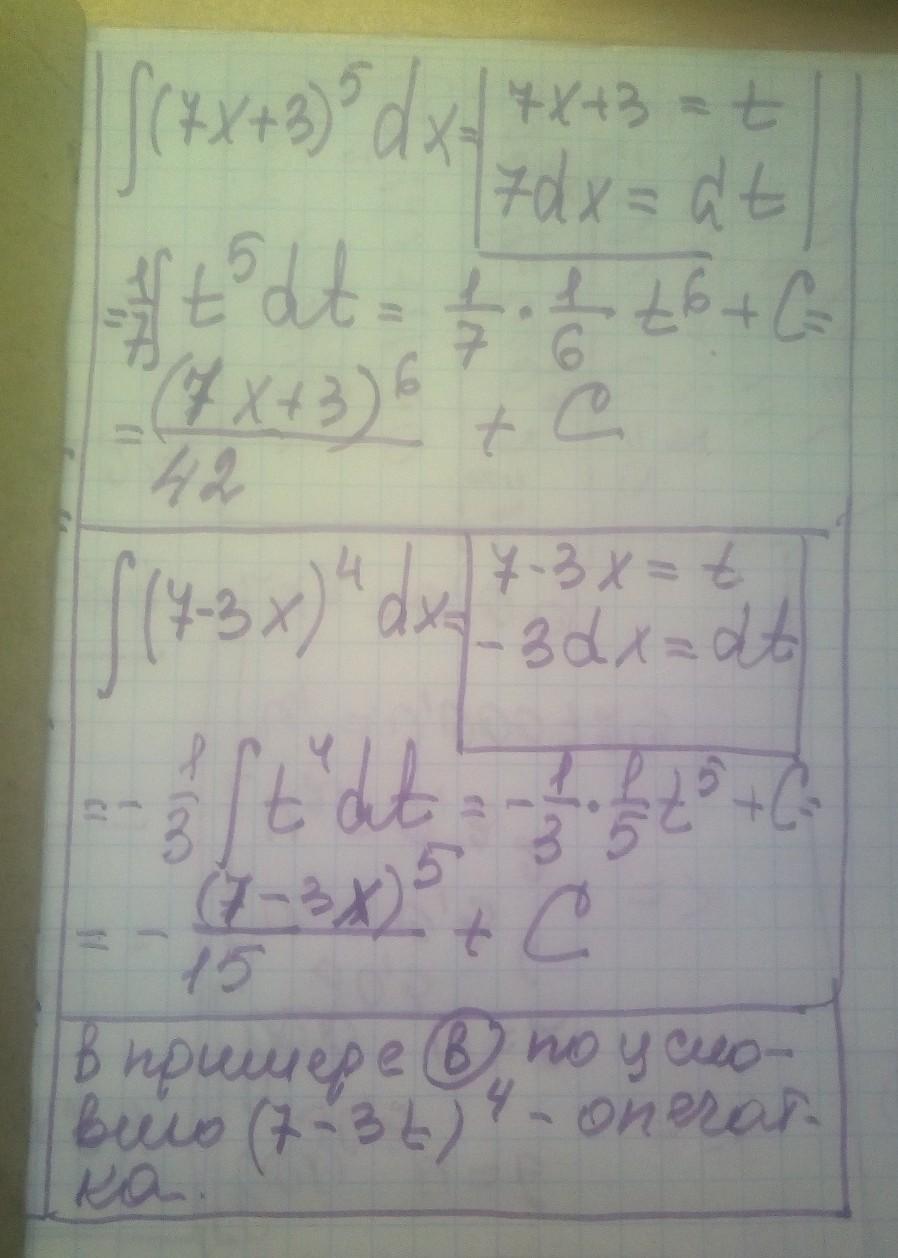 ∫(7x+3)⁵ dx = | 7x+3 = t
7dx = dt |
= 1/7 ∫ t⁵ dt = 1/7 · 1/6 t⁶ + C =
= (7x+3)⁶/42 + C
∫(7-3x)⁴ dx = | 7-3x = t
-3dx = dt |
= - 1/3 ∫ t⁴ dt = - 1/3 · 1/5 t⁵ + C =
= - (7-3x)⁵/15 + C
В примере (в) по усло-
вию (7-3t)⁴ - опечат-
ка.